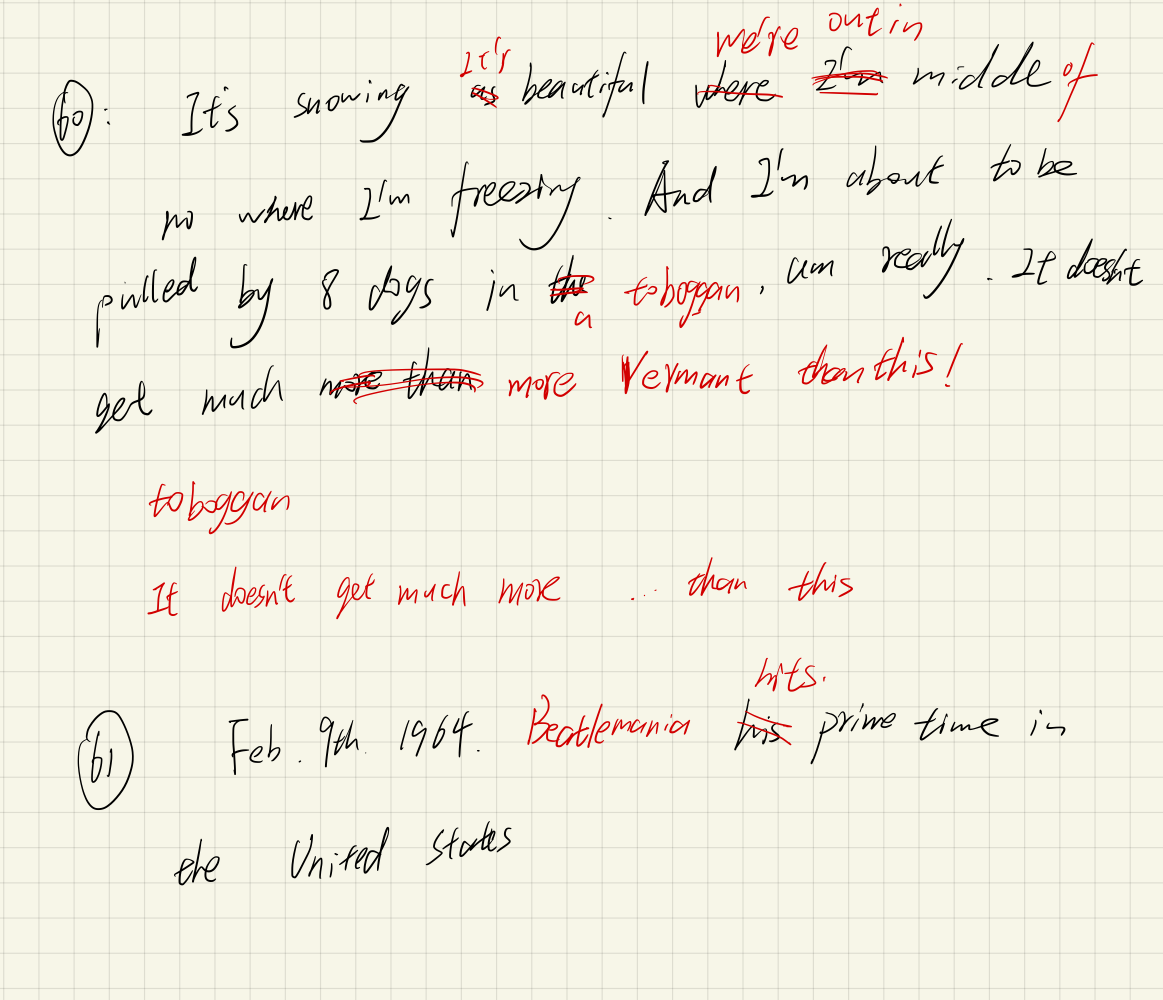 It's we're out in
60: It's snowing as beautiful where I'm middle of
no where I'm freezing. And I'm about to be
pulled by 8 dogs in the toboggan, um really. It doesn't
a
get much more than more Vermant than this!
toboggan
It doesn't get much more ... than this
hits.
61 Feb. 9th. 1964. Beatlemania his prime time in
the United States